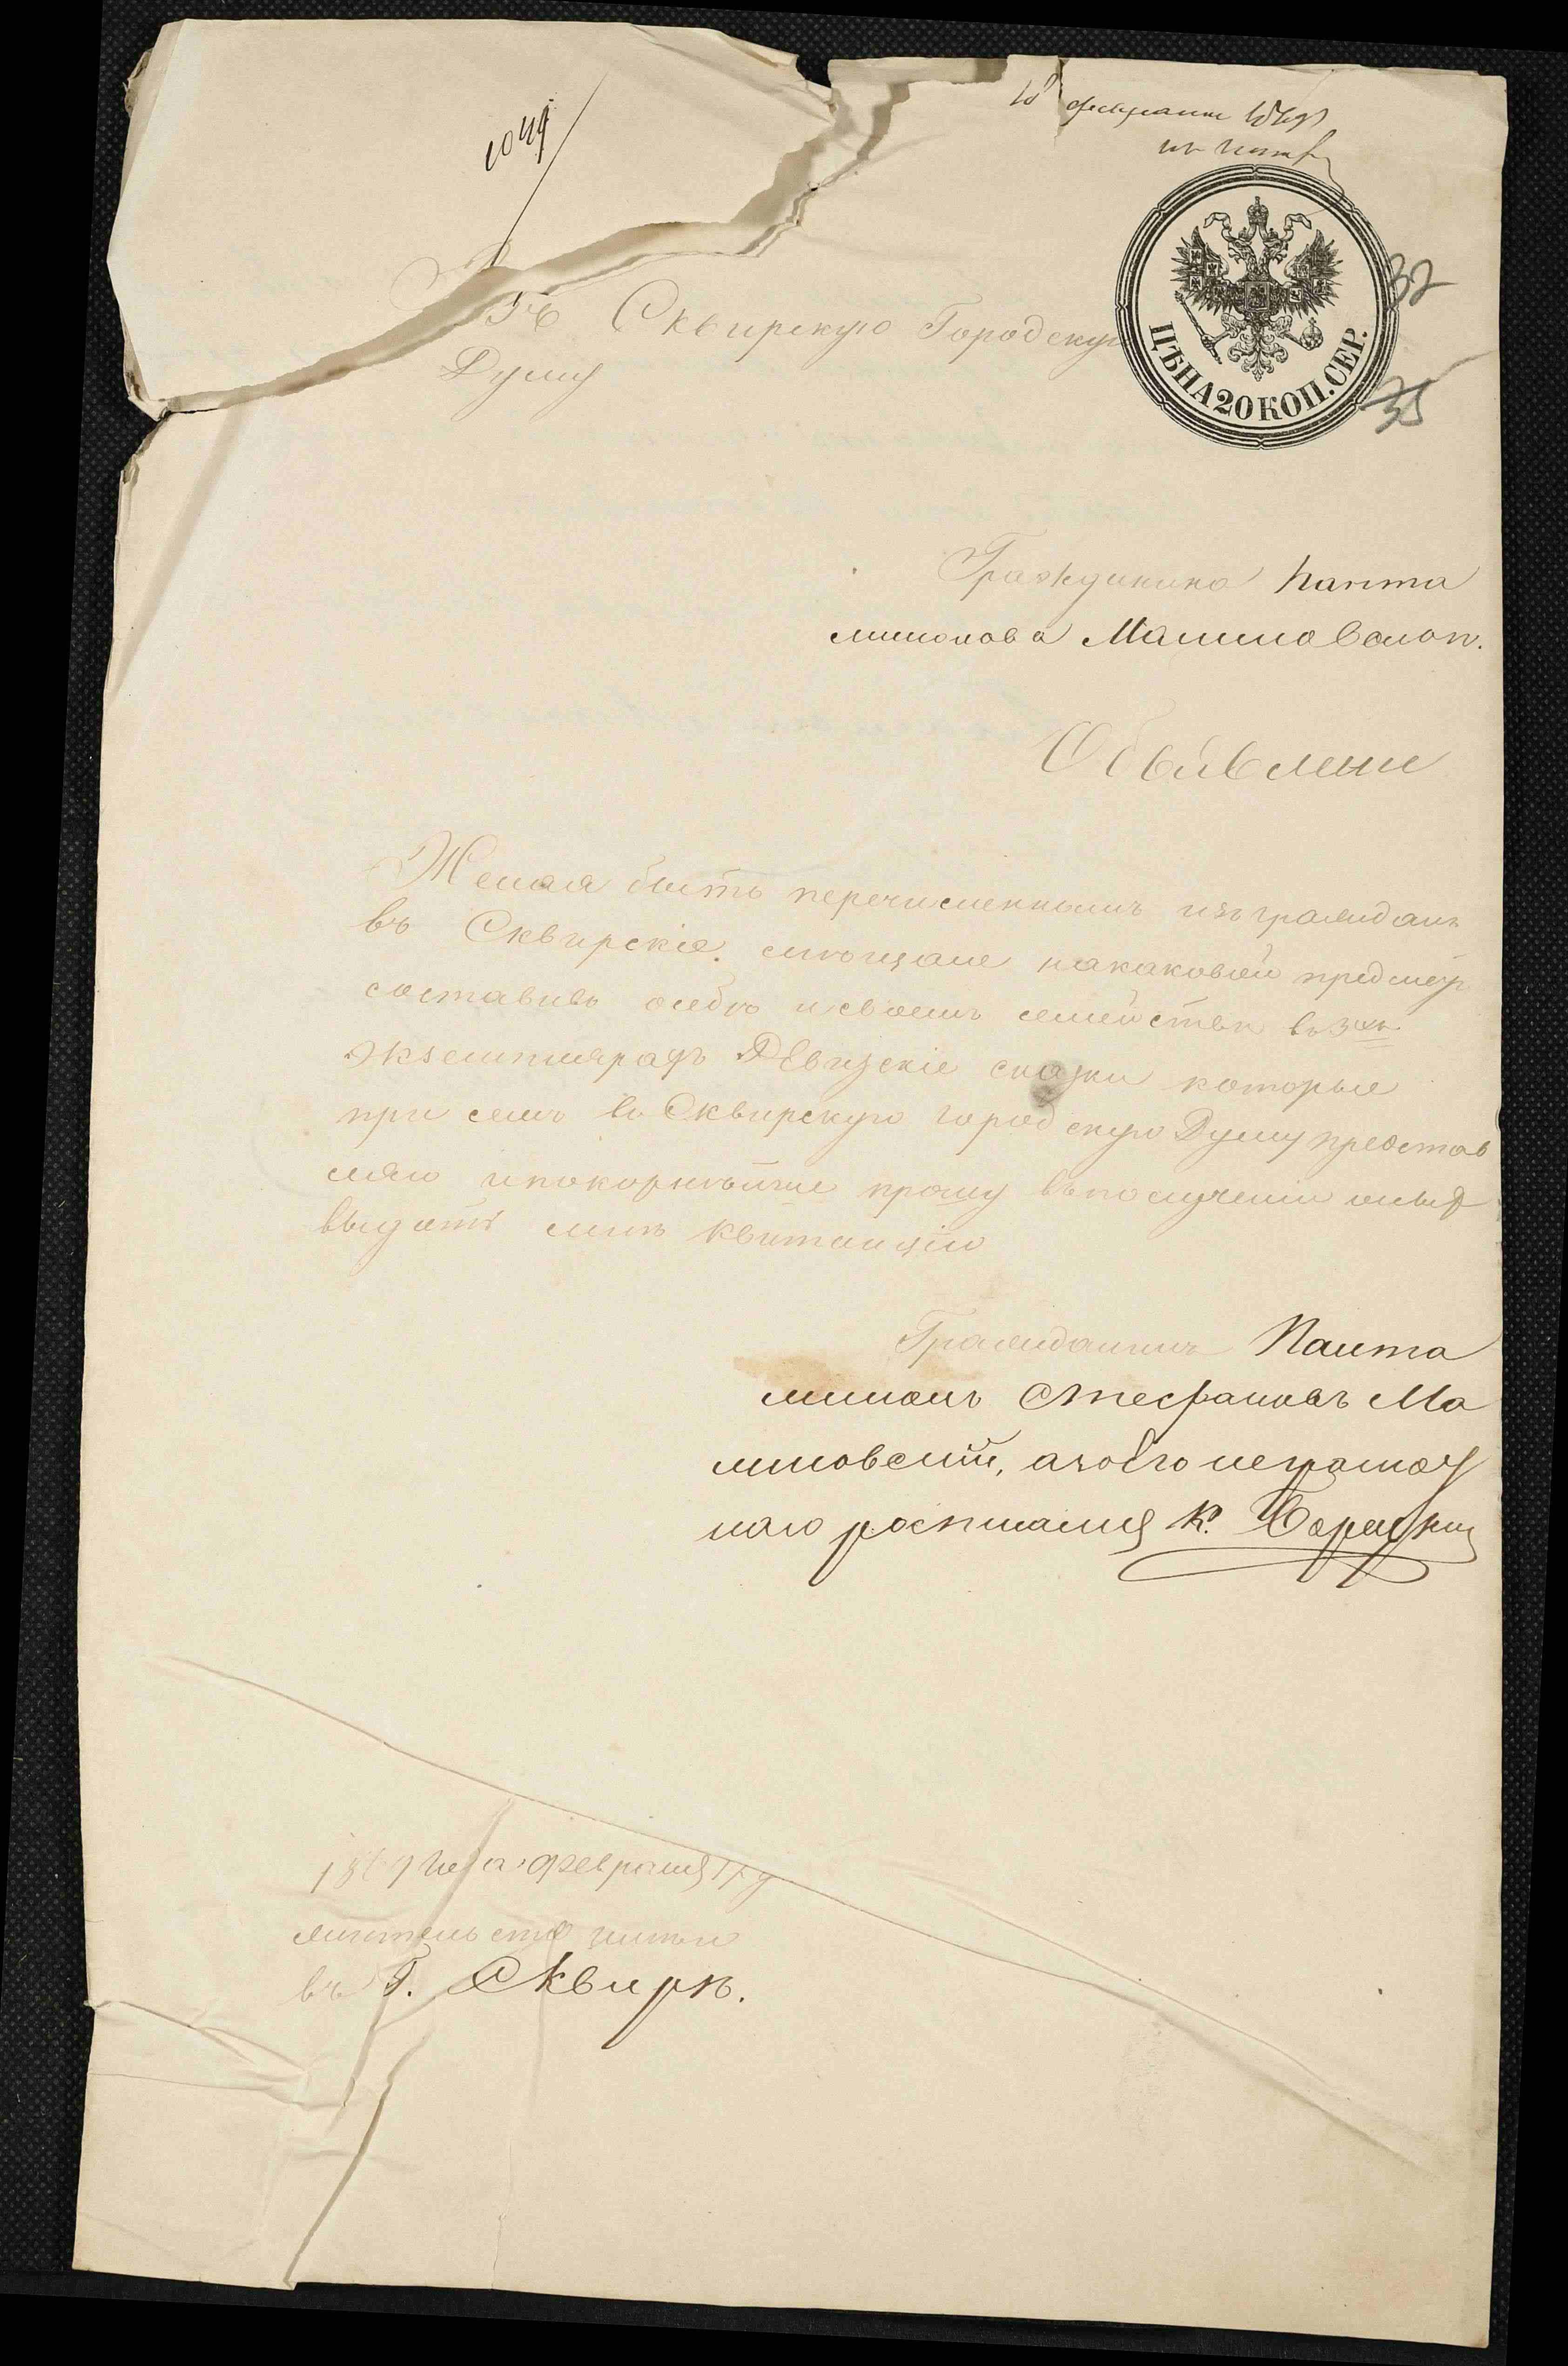 1044
10 февраля 1869
37
35
ЦѢНА 20 КОП. СЕР.
Въ Сквирскую Городскую
Думу
Гражданина Панта
лимонова Малиновскаго.
Объявленіе
Желая быть перечисленнымъ изъ гражданъ
въ Сквирскіе мѣщане на каковой предмѣтъ
составивъ о себѣ и своемъ семействѣ въ 3хъ
экземплярахъ Ревизскіе сказки которые
при семъ въ Сквирскую городскую Думу представ
ляю и покорнѣйше прошу въ полученіи оныхъ
выдать мнѣ квитанцію
Гражданинъ Панта
лимонъ Стефановъ Ма
линовскій, а за его неграмот
наго росписался К.
1869 года февраля 17 д
жительство имѣю
въ Г. Сквирѣ.